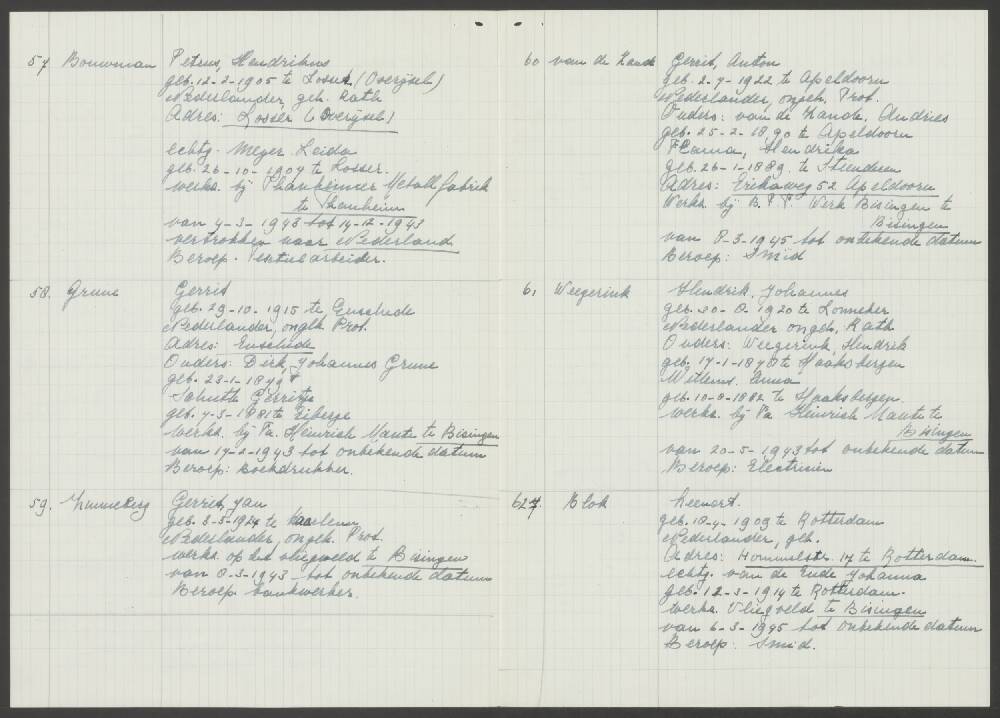 57 Bouwman Petrus, Hendrikus
geb. 12-2-1905 te Losser (Overijsel)
Nederlander, geh. Kath
Adres: Losser (Overijsel)
echtg. Meyer Leida
geb. 26-10-1907 te Losser.
werkz. bij Thanheimer Metallfabriek
te Thanheim
van 4-3-1943 tot 14-12-1943
vertrokken naar Nederland
Beroep. Textielarbeider.
58. Grune Gerrit
geb. 29-10-1915 te Enschede
Nederlander, ongeh. Prot.
Adres: Enschede
Ouders: Dirk, Johannes Grune
geb. 23-1-1879
Gerritje
geb. 7-3-1881 te
werkz. bij Fa. Heinrich Maute te Bisingen
van 17-2-1943 tot onbekende datum
Beroep: boekdrukker.
59. Gerrit, Jan
geb. 3-5-1924 te Haarlem
Nederlander, ongeh. Prot.
werkz. op het vliegveld te Bisingen
van 8-3-1943 tot onbekende datum
Beroep bankwerker.
60 van de Zande Gerrit, Anton
geb. 2-7-1922 te Apeldoorn
Nederlander, ongeh. Prot.
Ouders: van de Zande, Andries
geb. 25-2-1890 te Apeldoorn
Hendrika
geb. 26-1-1889 te
Adres: Erikaweg 52 Apeldoorn
Werkz. bij Werk Bisingen te
Bisingen
van 8-3-1945 tot onbekende datum
Beroep: Smid
61 Weegerink Hendrik, Johannes
geb. 30-8-1920 te Lonneker
Nederlander ongeh. Kath
Ouders: Weegerink, Hendrik
geb. 17-1-1878 te Haaksbergen
Willems, Anna
geb. 10-8-1882 te Haaksbergen.
werkz. bij Fa Heinrich Maute te
Bisingen
van 20-5-1943 tot onbekende datum
Beroep: Electricien
627. Blok Leenert.
geb. 18-4-1909 te Rotterdam
Nederlander, geh.
Adres: Hommelstr 17 te Rotterdam.
echtg. van de Ende Johanna
geb. 12-3-1914 te Rotterdam.
werkz. Vliegveld te Bisingen
van 6-3-1945 tot onbekende datum
Beroep: Smid.